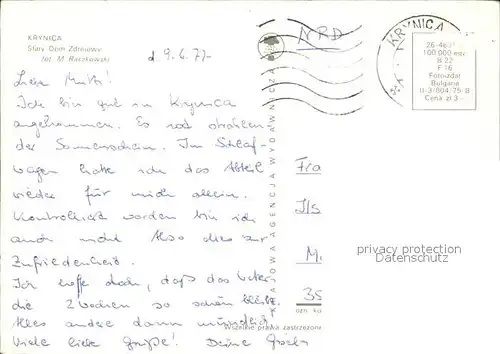 KRYNICA
Stary Dom Zdrojowy
fot. M. Raczkowski
d. 9.6.77
NRD
KRYNICA
100 000 egz.
B 22
F 16
Fotoizdat
Bulgaria
Cena zł 3.-
Liebe Mutti!
Ich bin gut in Krynica
angekommen. Es ist strahlen-
der Sonnenschein. Im Schlaf-
wagen hatte ich das Abteil
wieder für mich allein.
Kontrolliert worden bin ich
auch nicht. Also alles zur
Zufriedenheit.
Ich hoffe doch, daß das Wetter
die 2 Wochen so schön bleibt.
Alles andere dann mündlich
Viele liebe Grüße! Deine
KRAJOWA AGENCJA WYDAWNICZA
Fra
Ils
M
35
privacy protection
Datenschutz
Wszelkie prawa zastrzeżone